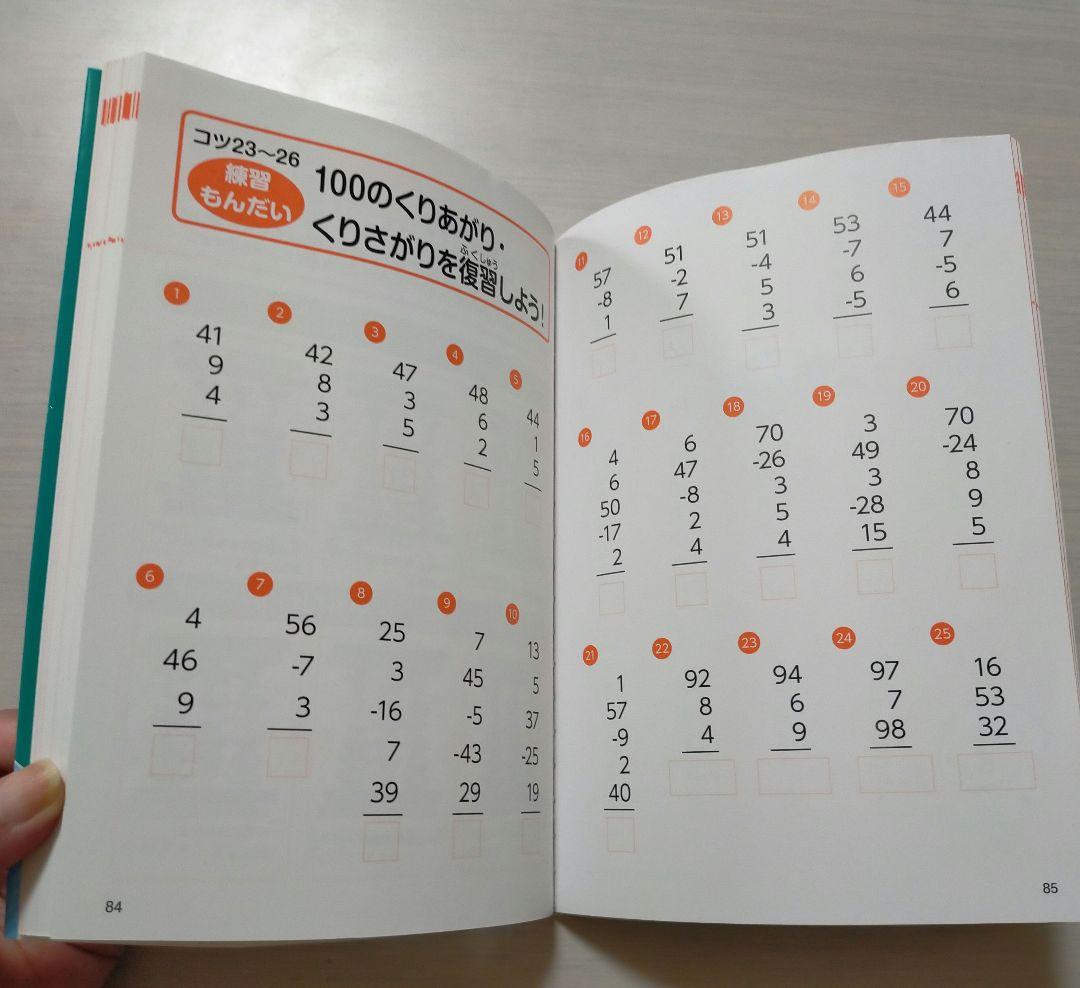 コツ23～26
練習
もんだい
100のくりあがり・
くりさがりを復習しよう!
ふくしゅう
1
41
9
4
2
42
8
3
3
47
3
5
4
48
6
2
5
44
1
5
6
4
46
9
7
56
-7
3
8
25
3
-16
7
39
9
7
45
-5
-43
29
10
13
5
37
-25
19
84
11
57
-8
1
12
51
-2
7
13
51
-4
5
3
14
53
-7
6
-5
15
44
7
-5
6
16
4
6
50
-17
2
17
6
47
-8
2
4
18
70
-26
3
5
4
19
3
49
3
-28
15
20
70
-24
8
9
5
21
1
57
-9
2
40
22
92
8
4
23
94
6
9
24
97
7
98
25
16
53
32
85